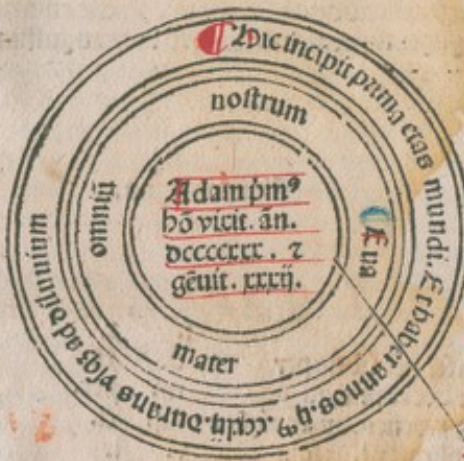 ¶ Hic incipit prima etas mundi. Et habet annos. ij⁹. ccxlij. durans vsqꝫ ad diluuium
Eua mater omniū nostrum
Adam p̄m⁹
hō vixit. ān.
dccccxxx. ⁊
gēuit. xxxij.